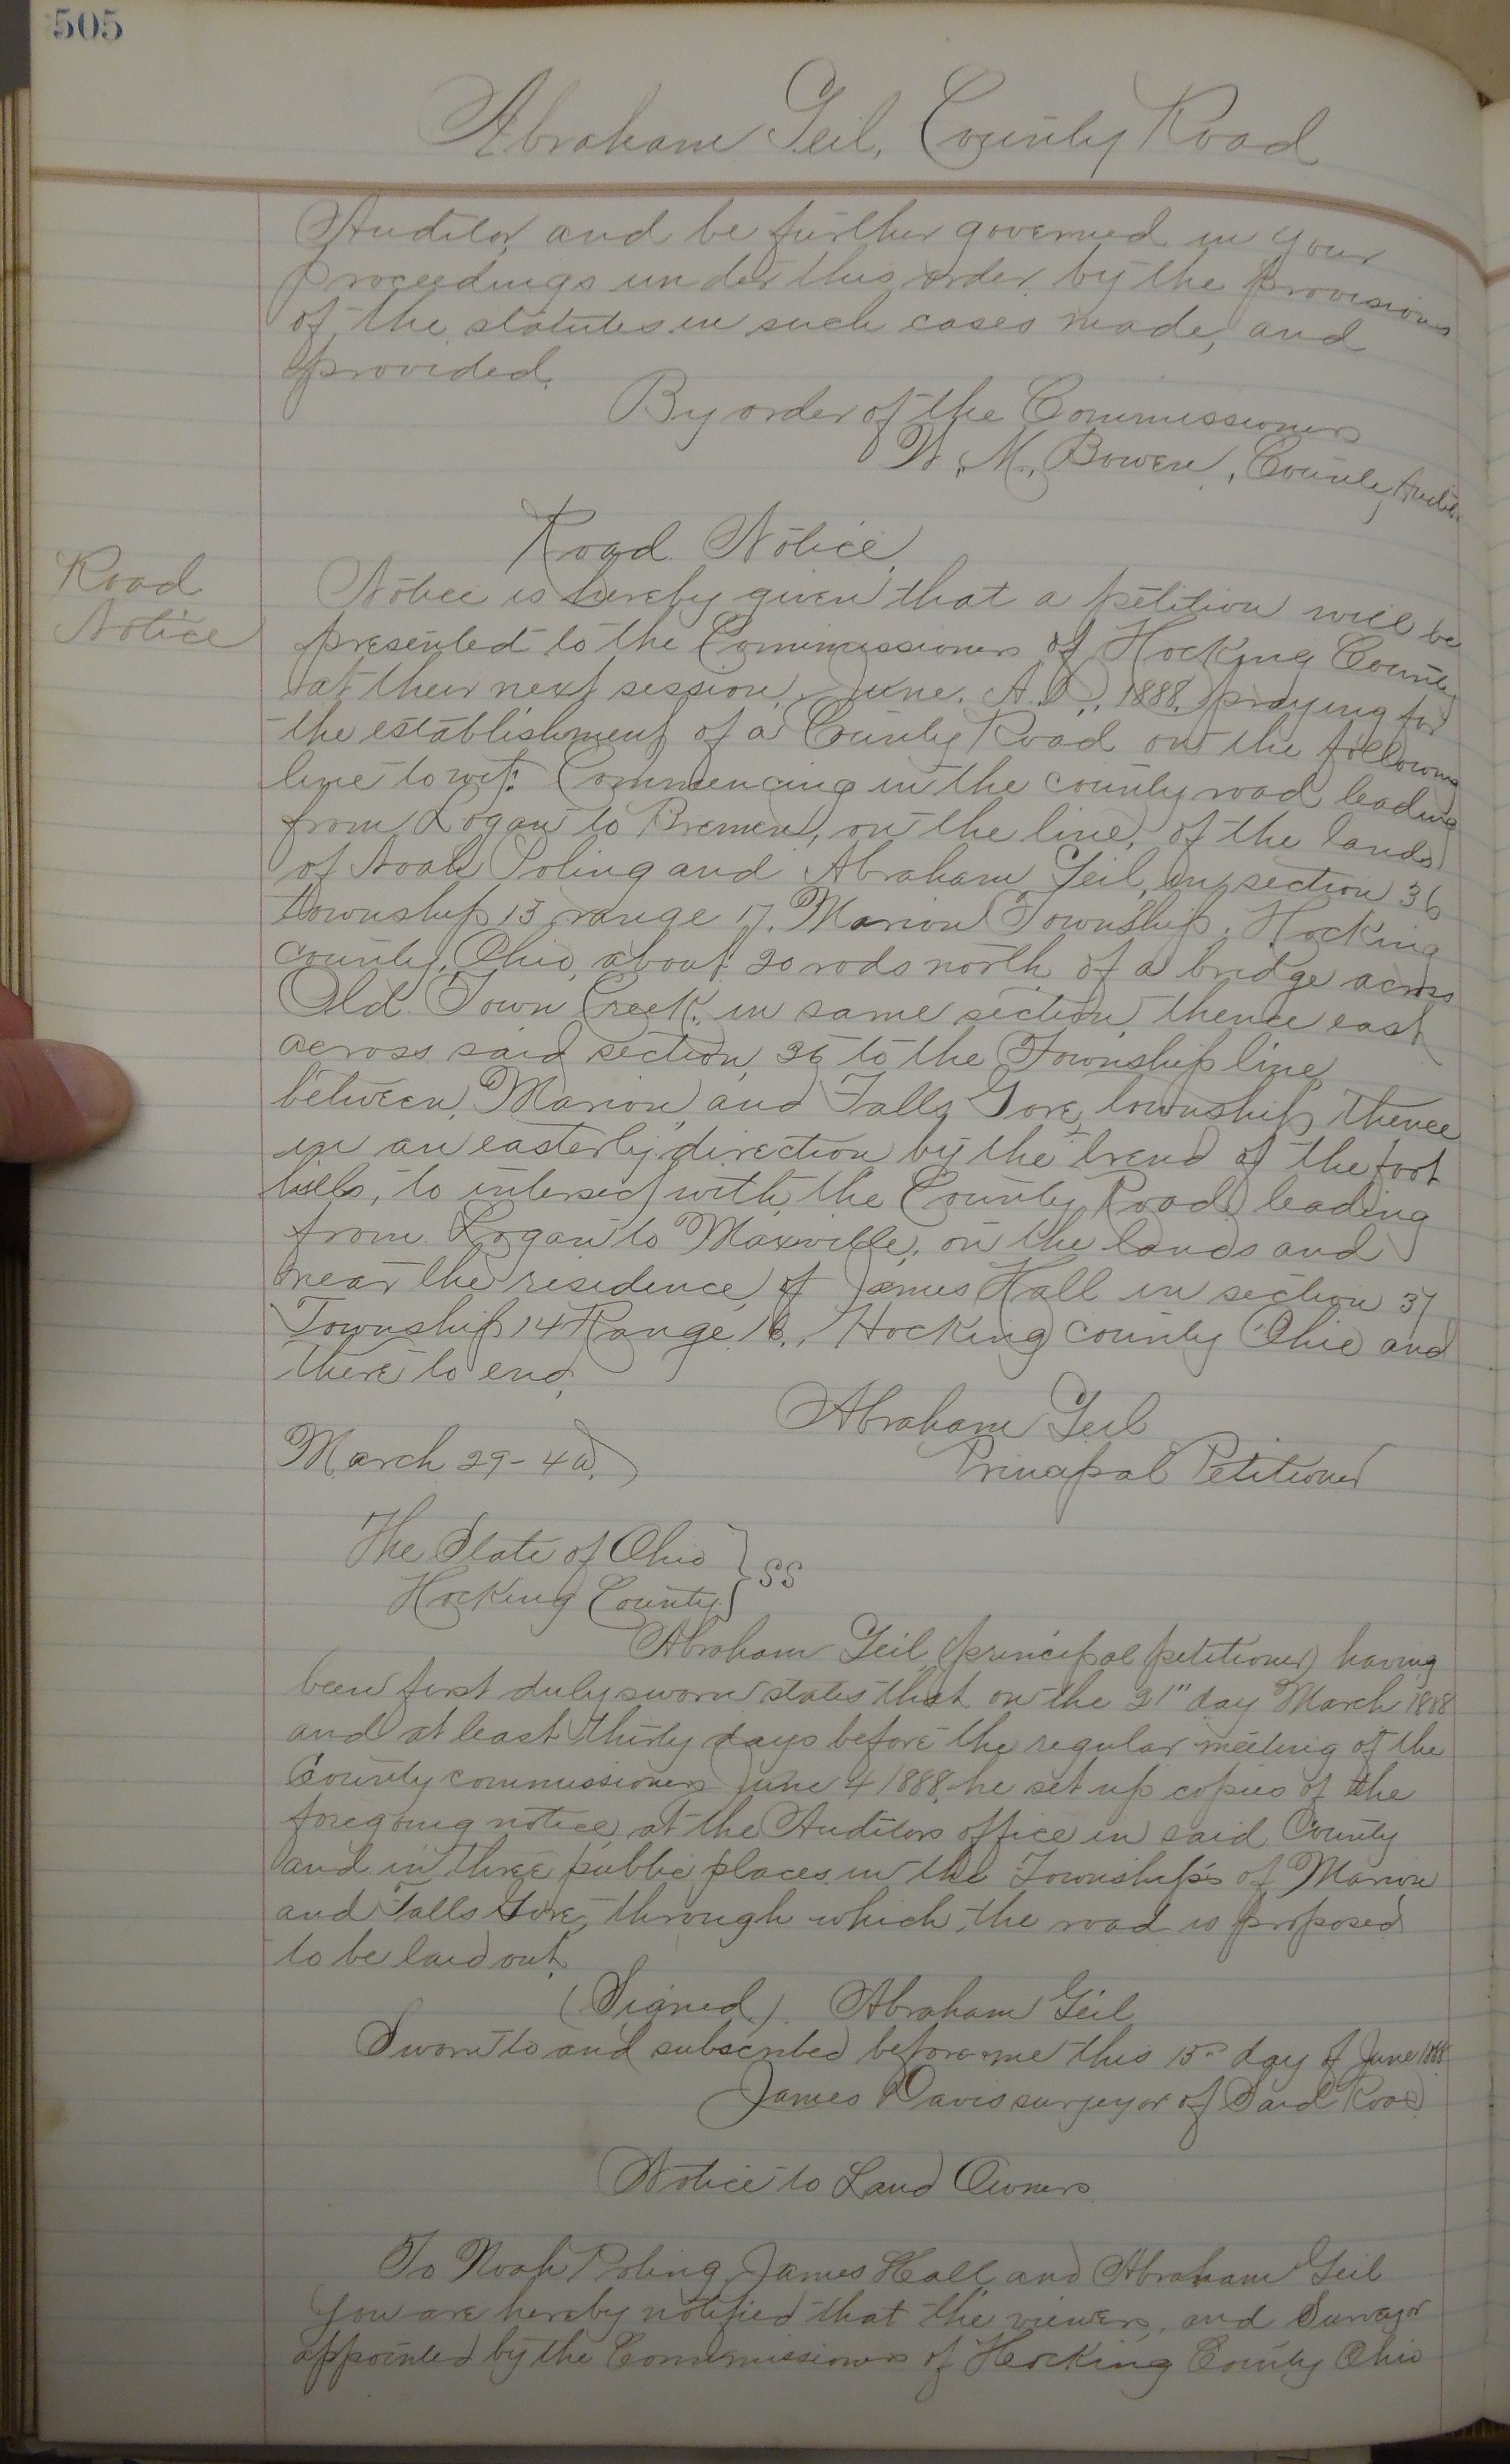 505
Abraham Geil, County Road
Auditor, and be further governed in your
proceedings under this order, by the provisions
of the statutes in such cases made, and
provided.
By order of the Commissioners
W. M. Bowen, County Auditor
Road Notice.
Road
Notice
Notice is hereby given that a petition will be
presented to the Commissioners of Hocking County
at their next session, June, A.D., 1888, praying for
the establishment of a County Road on the following
line to wit: Commencing in the county road leading
from Logan to Bremen, on the line, of the lands
of Noah Poling and Abraham Geil, in section 36
township 15 range 17, Marion Township, Hocking
county, Ohio, about 20 rods north of a bridge across
Old Town Creek, in same section, thence east
across said section, 36 to the Township line,
between, Marion, and Falls Gore, township, thence
in an easterly direction by the trend of the foot
hills, to intersect with, the County Road leading
from Logan to Maxville, on the lands and
near the residence, of James Hall in section 31
Township 14 Range 16., Hocking county Ohio and
there to end,
Abraham Geil
March 29-4w.
Principal Petitioner
The State of Ohio
Hocking County } SS
Abraham Geil (principal petitioner) having
been first duly sworn states that on the 21" day March 1888
and at least thirty days before the regular meeting of the
County commissioners June 4 1888, he set up copies of the
foregoing notice, at the Auditors office in said County
and in three public places in the Townships of Marion
and Falls Gore, through which, the road is proposed
to be laid out.
(Signed.) Abraham Geil
Sworn to and subscribed before me this 15" day of June 1888
James Davis surveyor of Said Road
Notice to Land Owners
To Noah Poling, James Hall and Abraham Geil
You are hereby notified that the viewers, and Surveyor
appointed by the Commissioners of Hocking County Ohio